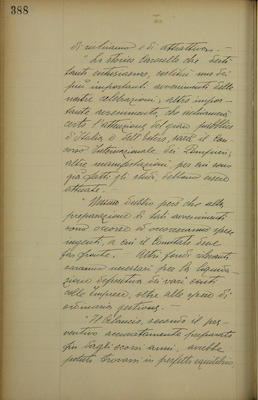 388
di richiamo e di attrattiva. —
"Lo storico Carosello che desti
tanti entusiasmi, costituì uno dei
più importanti avvenimenti delle
nostre celebrazioni; altro impor-
tante avvenimento, che richiamerà
certo l'attenzione del gran pubblico
d'Italia e dell'Estero, sarà il Con
corso Internazionale dei Pompieri;
altre manifestazioni, per cui sono
già fatti gli studi, debbono essere
attuate. —
"Nessun dubbio però che alla
preparazione di tali avvenimenti
sono occorse ed occorreranno spese
ingenti, a cui il Comitato deve
far fronte. — Altri fondi rilevanti
saranno necessari per la liquida-
zione definitiva di vari conti
delle Imprese, oltre alle spese di
ordinaria gestione. —
"Il bilancio, secondo il pre-
ventivo accuratamente preparato
fin dagli scorsi anni, avrebbe
potuto trovarsi in perfetto equilibrio